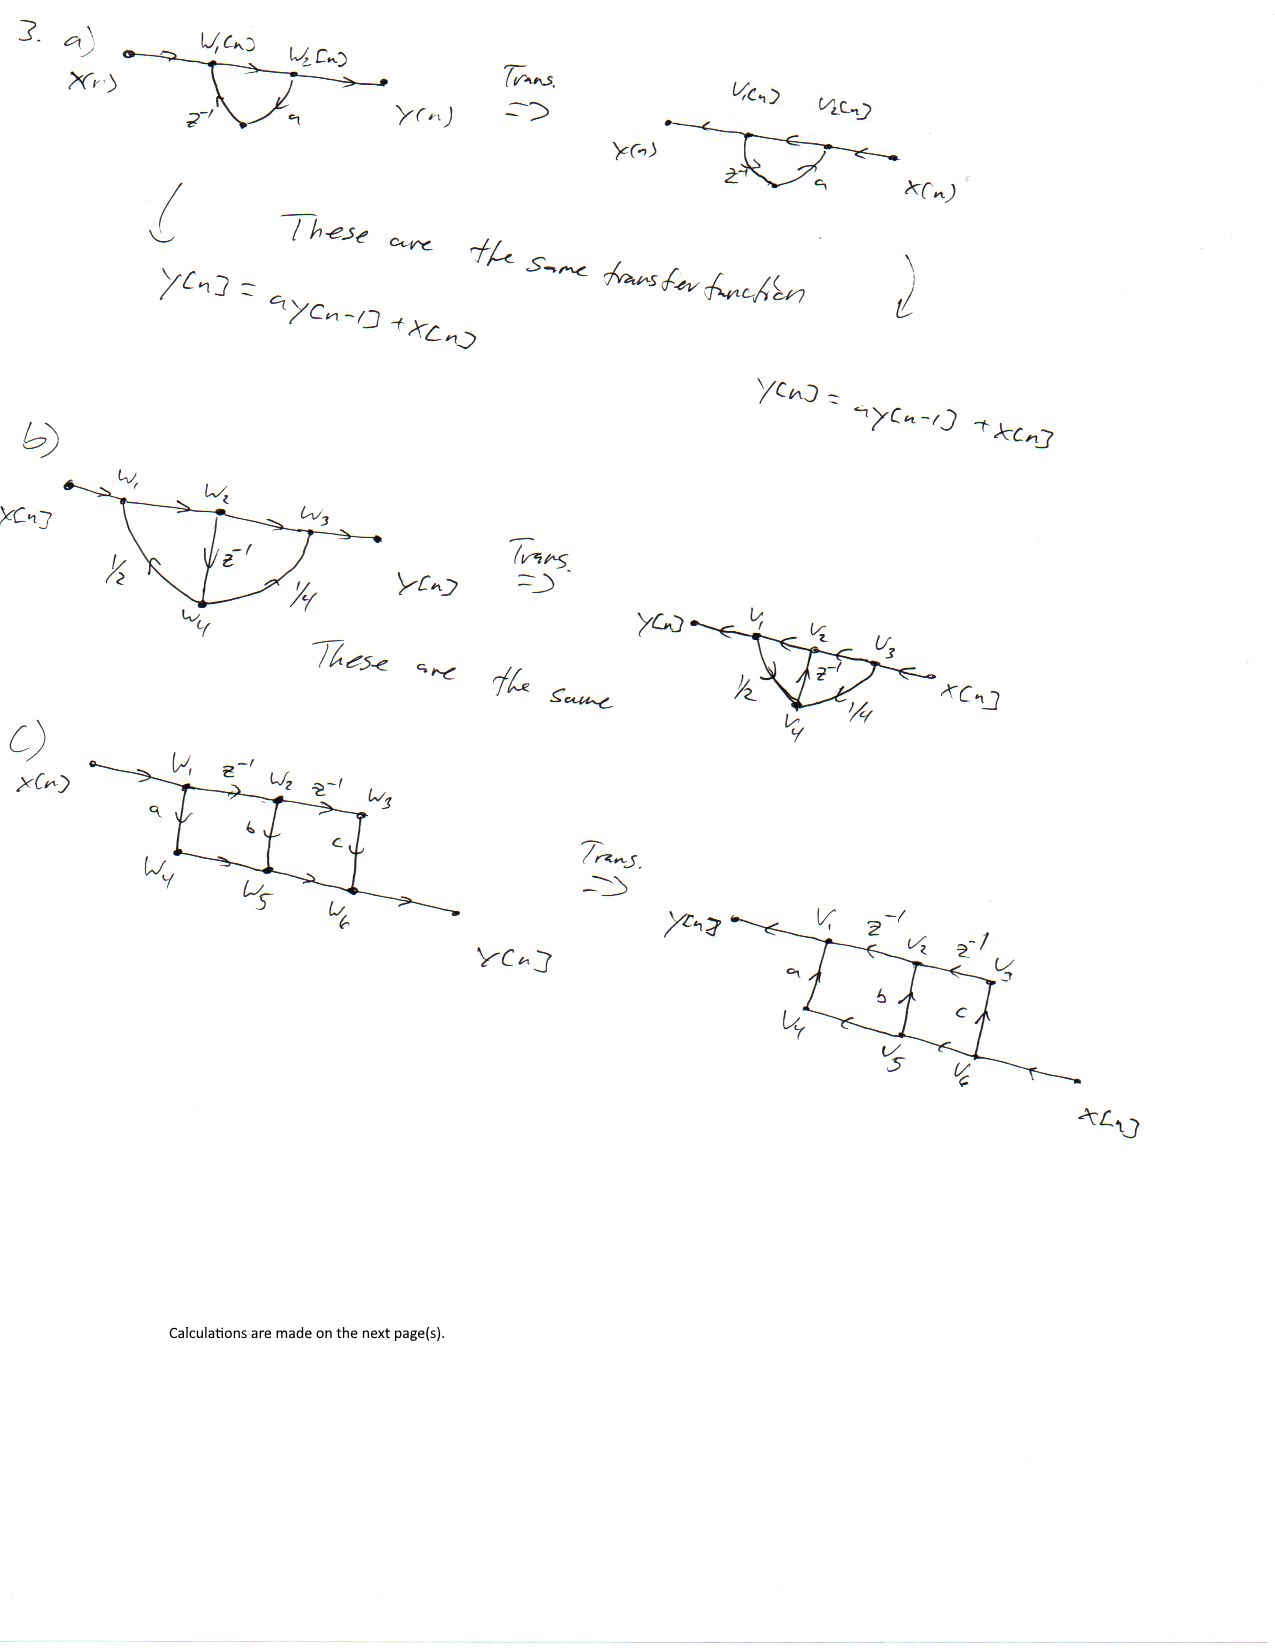 3. a)
W₁[n] W₂[n]
X[n] z⁻¹ a Y[n]
Trans.
=>
V₁[n] V₂[n]
Y[n] z⁻¹ a X[n]
These are the same transfer function
Y[n] = aY[n-1] + X[n]
Y[n] = aY[n-1] + X[n]
b)
W₁ W₂ W₃
X[n] 1/2 z⁻¹ 1/4 Y[n]
W₄
Trans.
=>
Y[n] V₁ V₂ V₃
1/2 z⁻¹ 1/4 X[n]
V₄
These are the same
c)
X[n] W₁ z⁻¹ W₂ z⁻¹ W₃
a b c
W₄ W₅ W₆
Y[n]
Trans.
=>
Y[n] V₁ z⁻¹ V₂ z⁻¹ V₃
a b c
V₄ V₅ V₆
X[n]
Calculations are made on the next page(s).